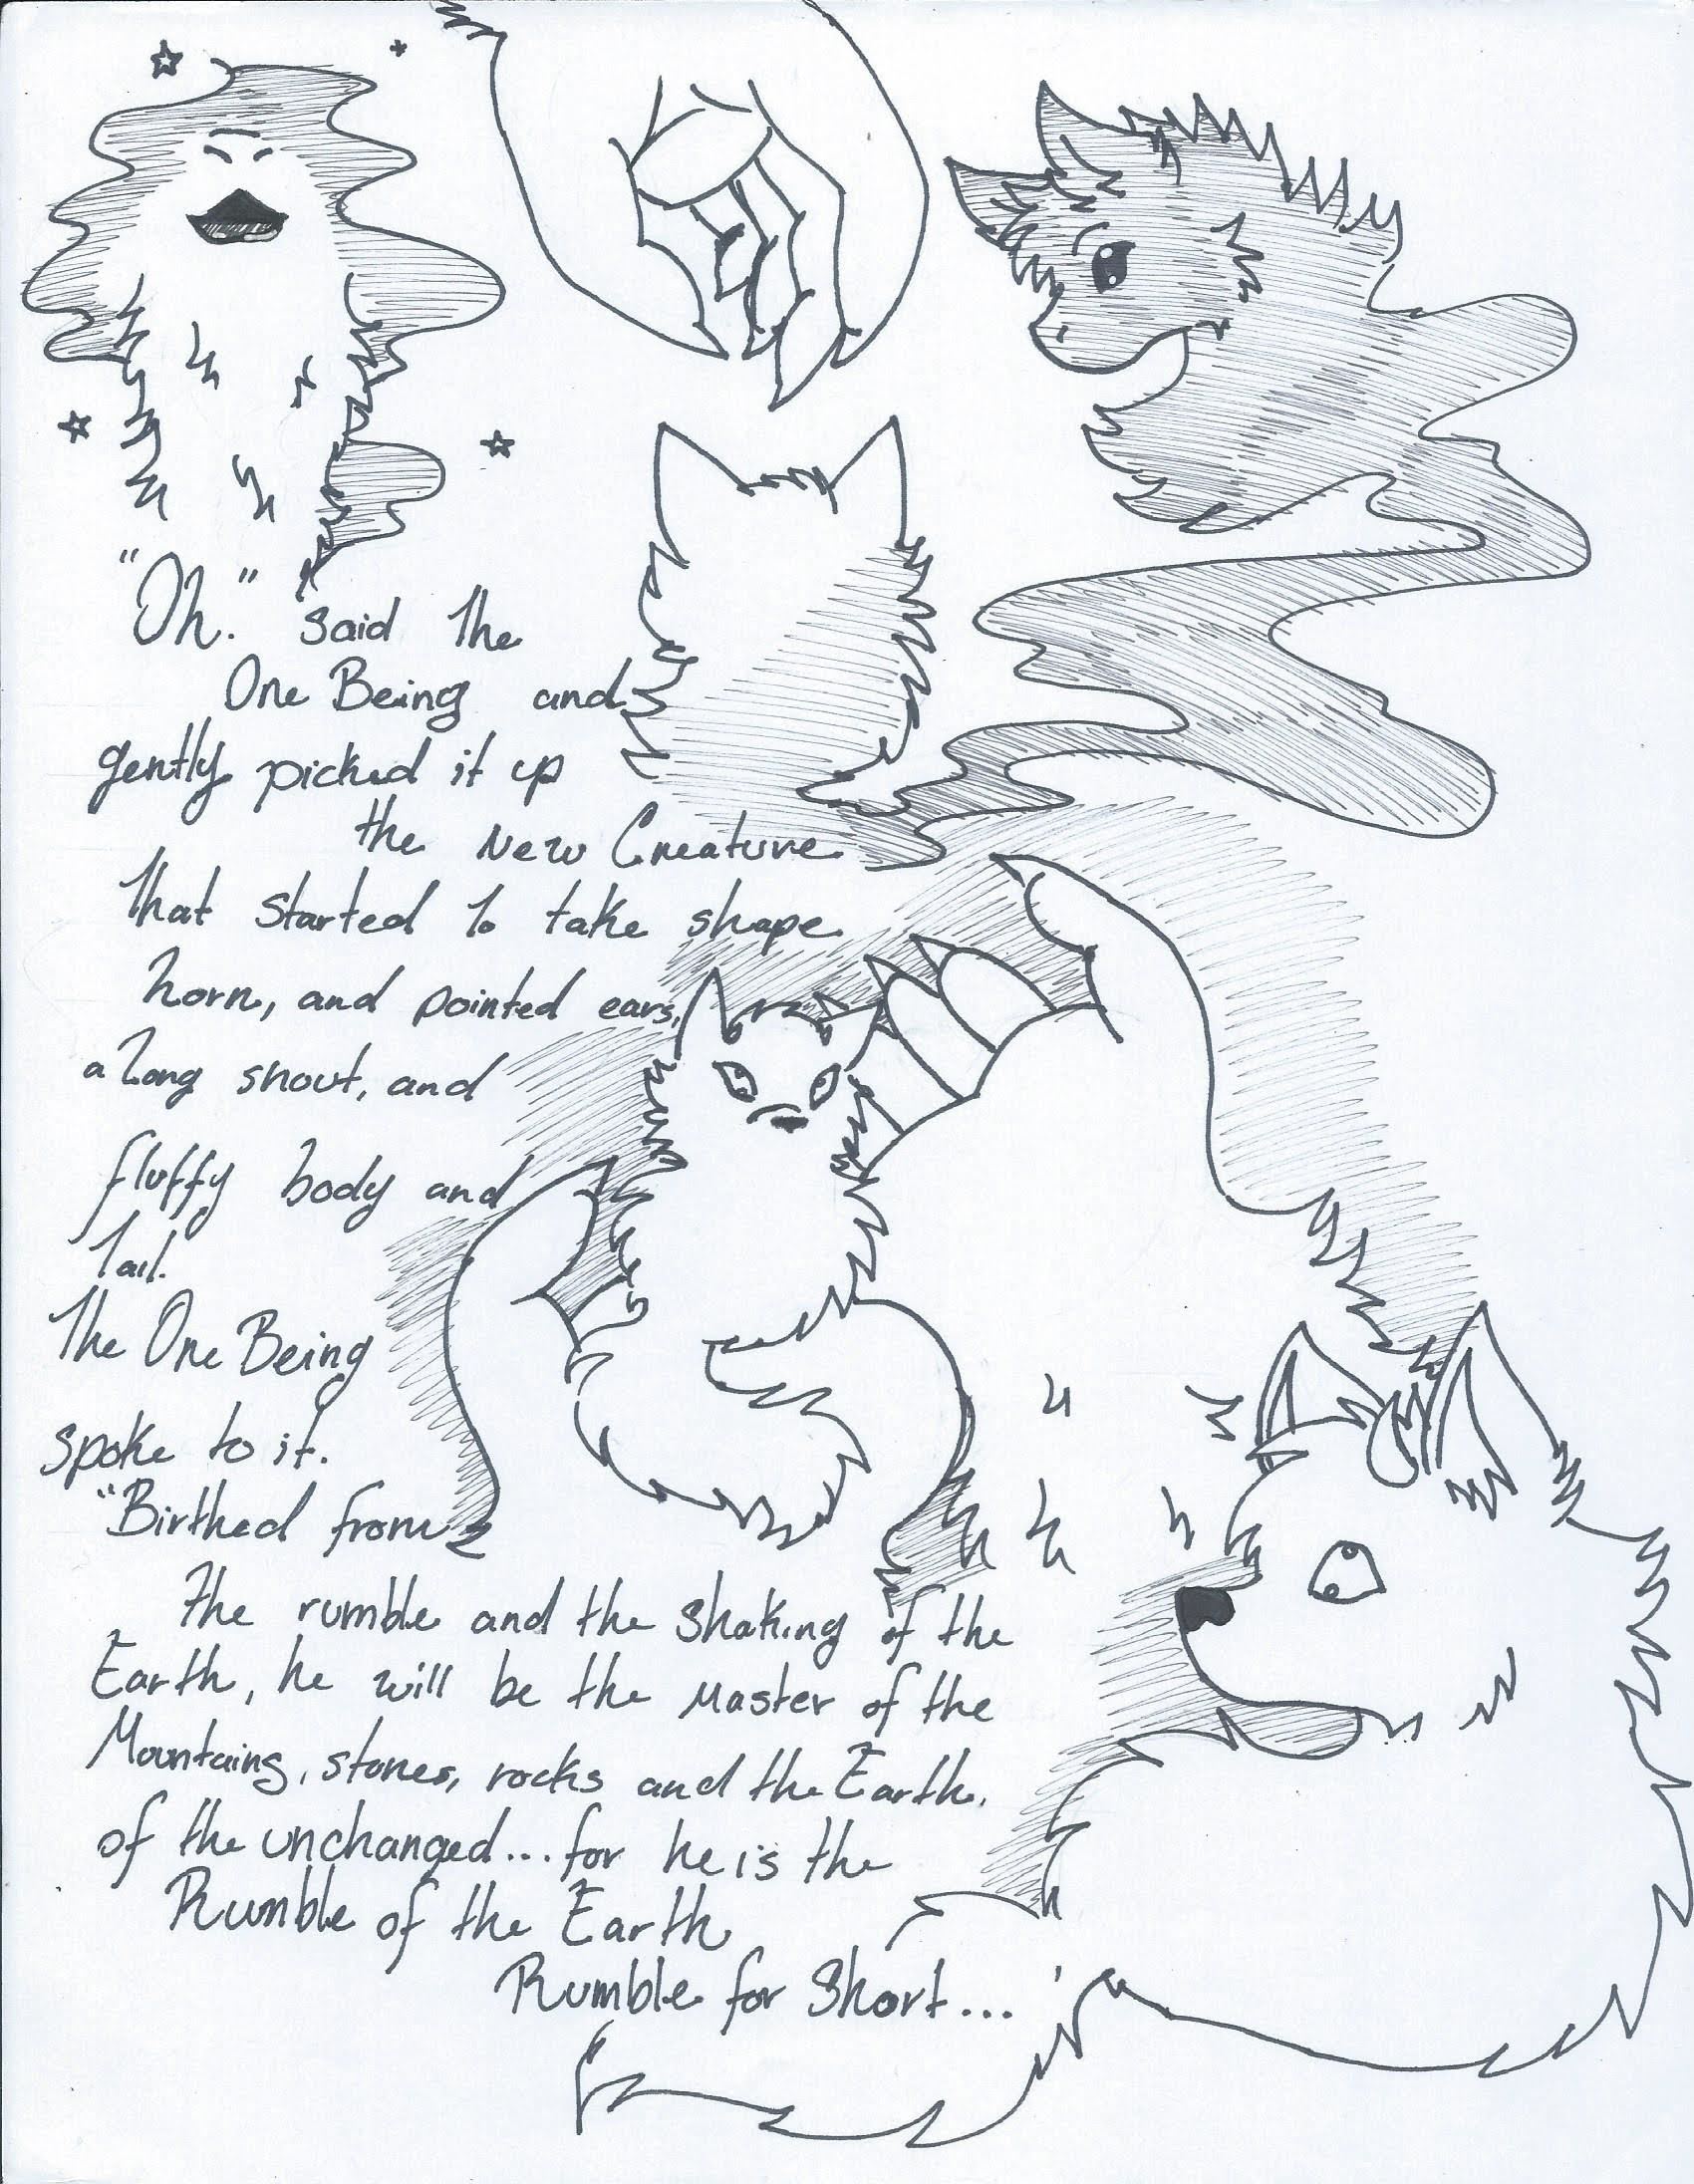 "Oh." said the
One Being and
gently picked it up
the New Creature
that started to take shape.
horn, and pointed ears,
a long snout, and
fluffy body and
tail.
The One Being
spoke to it.
"Birthed from
the rumble and the shaking of the
Earth, he will be the Master of the
Mountains, stones, rocks and the Earth.
of the unchanged... for he is the
Rumble of the Earth
Rumble for Short...